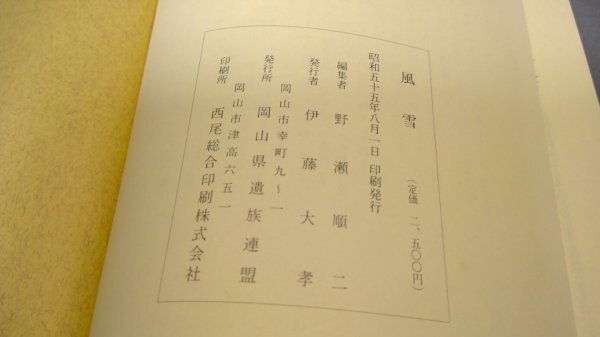 風雪
(定価 二、五〇〇円)
昭和五十五年八月一日 印刷発行
編集者 野瀬順二
発行者 伊藤大孝
岡山市幸町九~一
発行所 岡山県遺族連盟
岡山市津高六五一
印刷所 西尾総合印刷株式会社